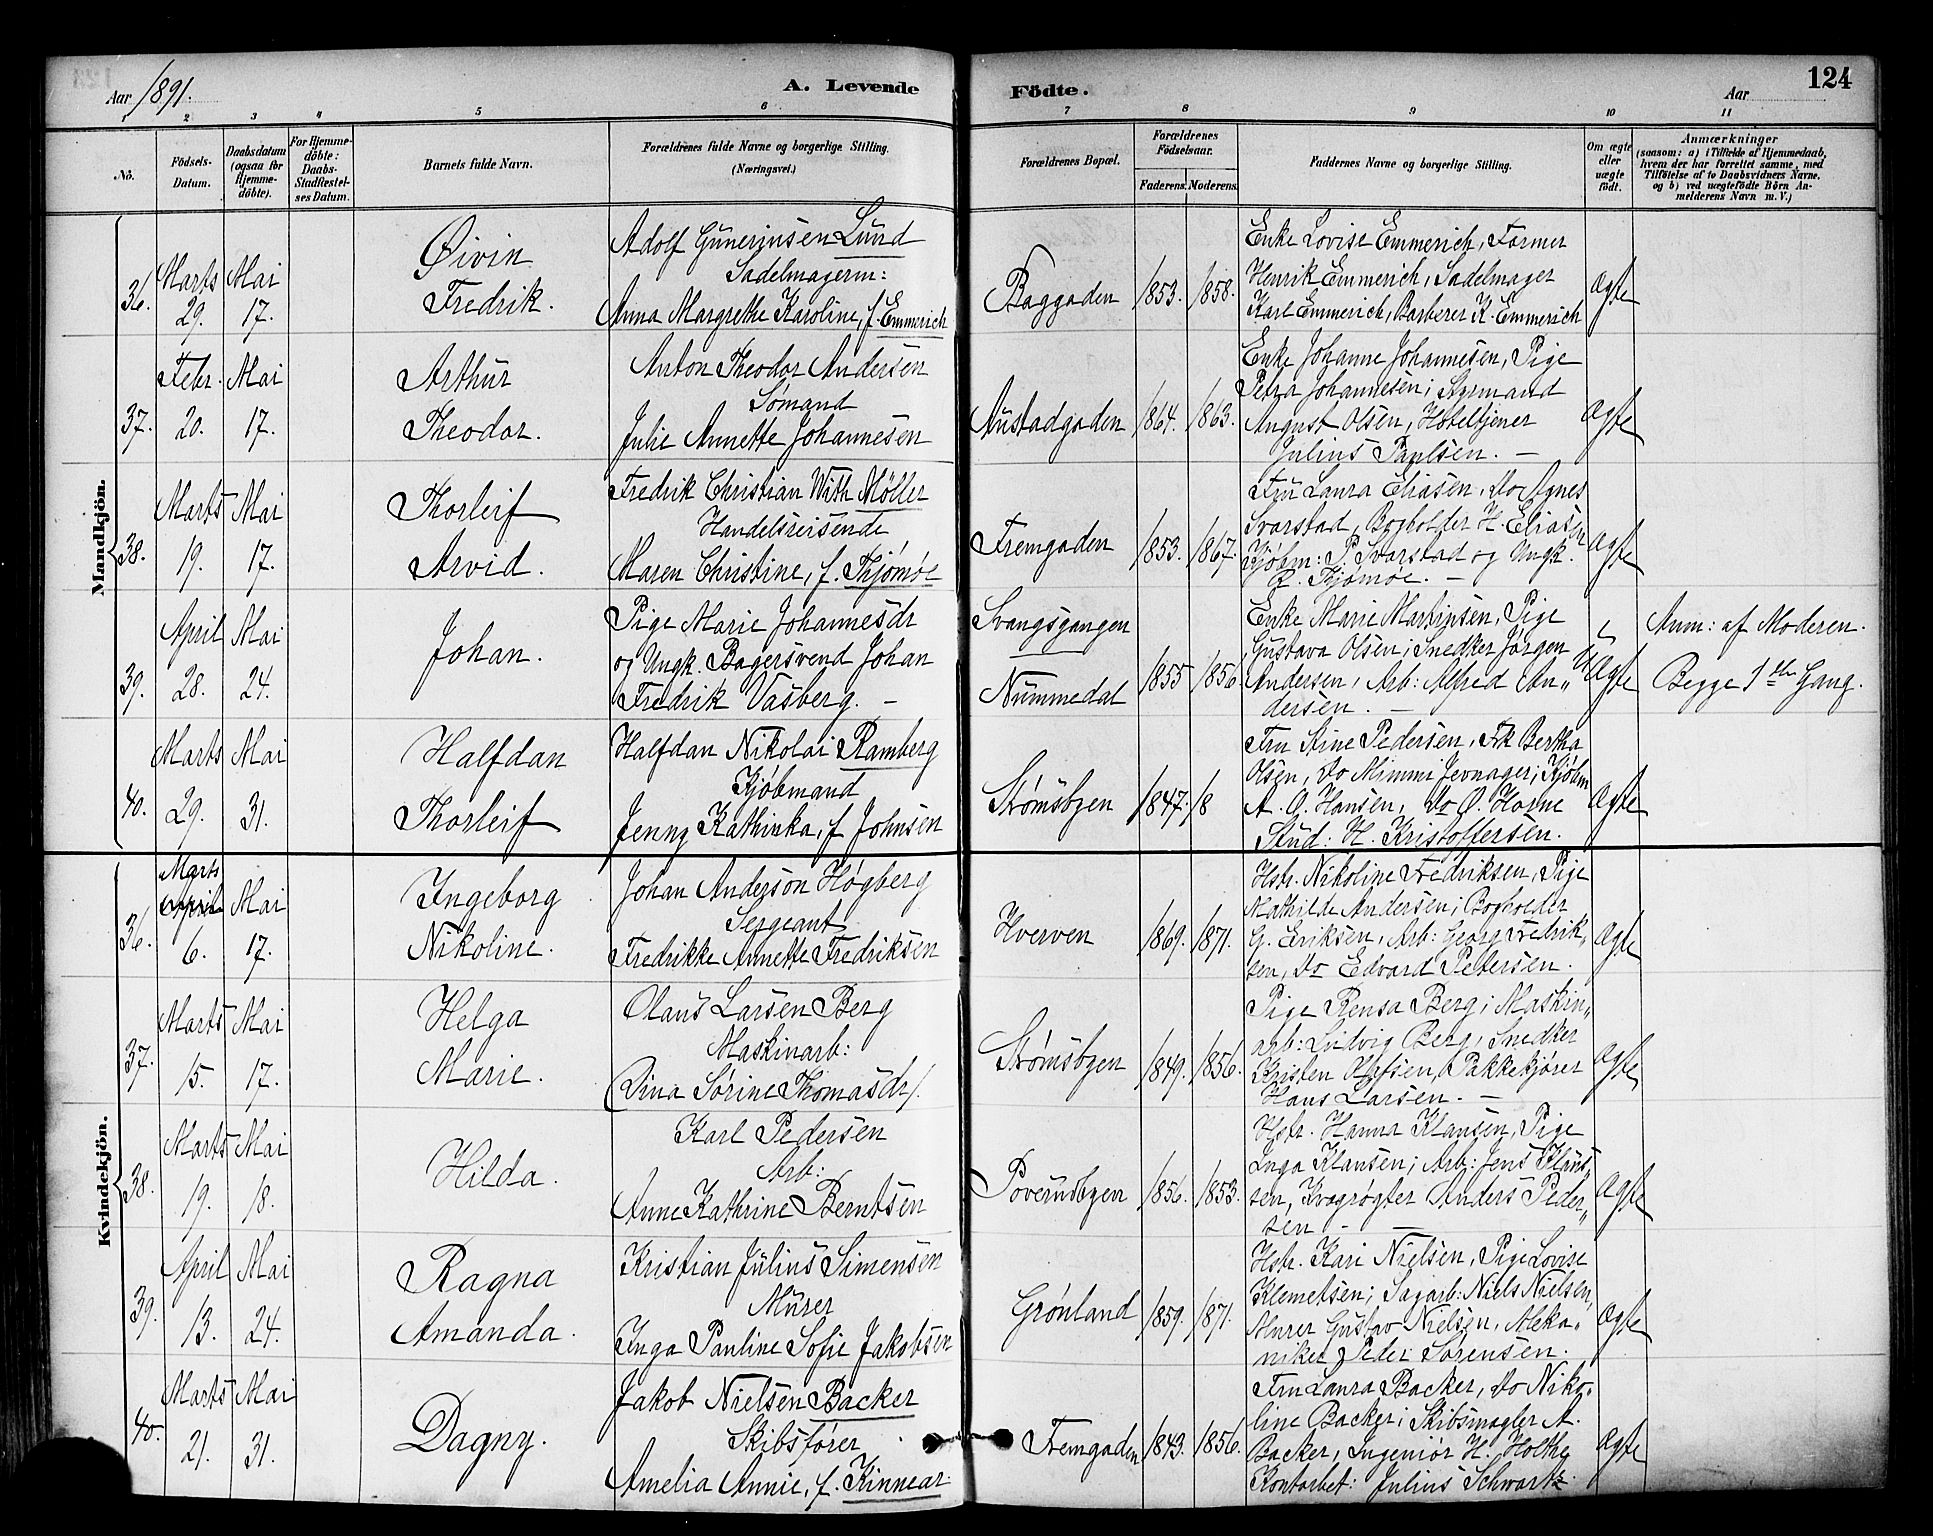 Aar 1891.
A. Levende
Födte.
Aar
124
1 2 3 4 5 6 7 8 9 10 11
No.
Födsels-Datum.
Daabsdatum (ogsaa för Hjemme-döbte).
For Hjemme-döbte: Daabs-Stadfæstel-ses Datum.
Barnets fulde Navn.
Forældrenes fulde Navne og borgerlige Stilling.
(Næringsvei.)
Forældrenes Bopæl.
Forældrenes Födselsaar.
Faderens. Moderens.
Faddernes Navne og borgerlige Stilling.
Om ægte eller uægte födt.
Anmærkninger
(saasom: a) i Tilfælde af Hjemmedaab,
hvem der har forrettet samme, med
Tilföielse af to Daabsvidners Navne,
og b) ved uægtefödte Börn An-
melderens Navn m. V.)
Mandkjön.
36.
Marts 29.
Mai 17.
Øivin
Fredrik.
Adolf Gunerjusen Lund
Sadelmagerm:
Anna Margrethe Karoline, f. Emmerich
Baggaden
1853.
1858.
Enke Lovise Emmerich, Former
Henrik Emmerich, Sadelmager
Karl Emmerich, Barberer K. Emmerich
Ægte
37.
Febr. 20.
Mai 17.
Arthur
Theodor.
Anton Theodor Andersen
Sømand
Julie Annette Johannesen
Austadgaden
1864.
1863.
Enke Johanne Johannesen, Pige
Petra Johannesen; Styrmand
August Olsen, Hoteltjener
Julius Paulsen. —
Ægte
38.
Marts 19.
Mai 17.
Thorleif
Arvid.
Fredrik Christian With Møller
Handelsreisende
Maren Christine, f. Thjømøe
Fremgaden
1853.
1867.
Fru Laura Eliasen, Do Agnes
Svarstad, Bogholder H. Eliasen
Kjøbm: P. Svarstad og Ungk.
R. Thjømøe. —
Ægte
39.
April 28.
Mai 24.
Johan.
Pige Marie Johannesdr
og Ungk. Bagersvend Johan
Fredrik Vasberg. —
Svangsgangen
Nummedal
1855
1856.
Enke Marie Martinsen, Pige
Gustava Olsen; Snedker Jørgen
Andersen, Arb: Alfred An„
dersen. —
UÆgte
Anm: af Moderen.
Begge 1ste Gang.
40.
Marts 29.
Mai 31.
Halfdan
Thorleif
Halfdan Nikolai Ramberg
Kjøbmand
Jenny Kathinka, f. Johnsen
Strømsbyen
1847.
18
Fru Stine Pedersen, Frk Bertha
Olsen, Do Mimmi Jevnager; Kjøbm
A. O. Hansen, Do Ø. Hovne
Stud: H. Kristoffersen.
Ægte
Kvindekjön.
36.
Marts
April 6.
Mai 17.
Ingeborg
Nikoline.
Johan Anderson Høgberg
Sergeant
Fredrikke Annette Fredriksen
Hverven
1869.
1871.
Hstr. Nikoline Fredriksen, Pige
Mathilde Andersen; Bogholder
G. Eriksen, Arb: Georg Fredrik„
sen, Do Edvard Petersen.
Ægte
37.
Marts 15.
Mai 17.
Helga
Marie.
Olaus Larsen Berg
Maskinarb:
(Dina Sørine Thomasdr).
Strømsbyen
1849.
1856.
Pige Rensa Berg; Maskin„
arb: Ludvig Berg, Snedker
Kristen Olafsen, Pakkekjører
Hans Larsen. —
Ægte
38.
Marts 19.
Mai 18.
Hilda.
Karl Pedersen
Arb:
Anne Kathrine Berntsen
Povernsbyen
1856.
1853.
Hstr. Hanna Klausen, Pige
Inga Klausen; Arb: Jens Klaus„
sen, Kvægrøgter Anders Peder„
sen —
Ægte
39.
April 13.
Mai 24.
Ragna
Amanda.
Kristian Julius Simensen
Murer
Inga Pauline Sofie Jakobsen
Grønland
1859.
1871.
Hstr. Kari Nielsen, Pige Lovise
Klemetsen; Sagarb: Niels Nielsen,
Murer Gustav Nielsen, Meka„
niker Peder Sørensen.
Ægte
40.
Marts 21.
Mai 31.
Dagny.
Jakob Nielsen Backer
Skibsfører
Amelia Annie, f. Kinnear.
Fremgaden
1843.
1856.
Fru Laura Backer, Do Niko„
line Backer; Skibsmægler A.
Backer, Ingeniør H. Holthe
Kontorbet: Julius Schwartz.
Ægte